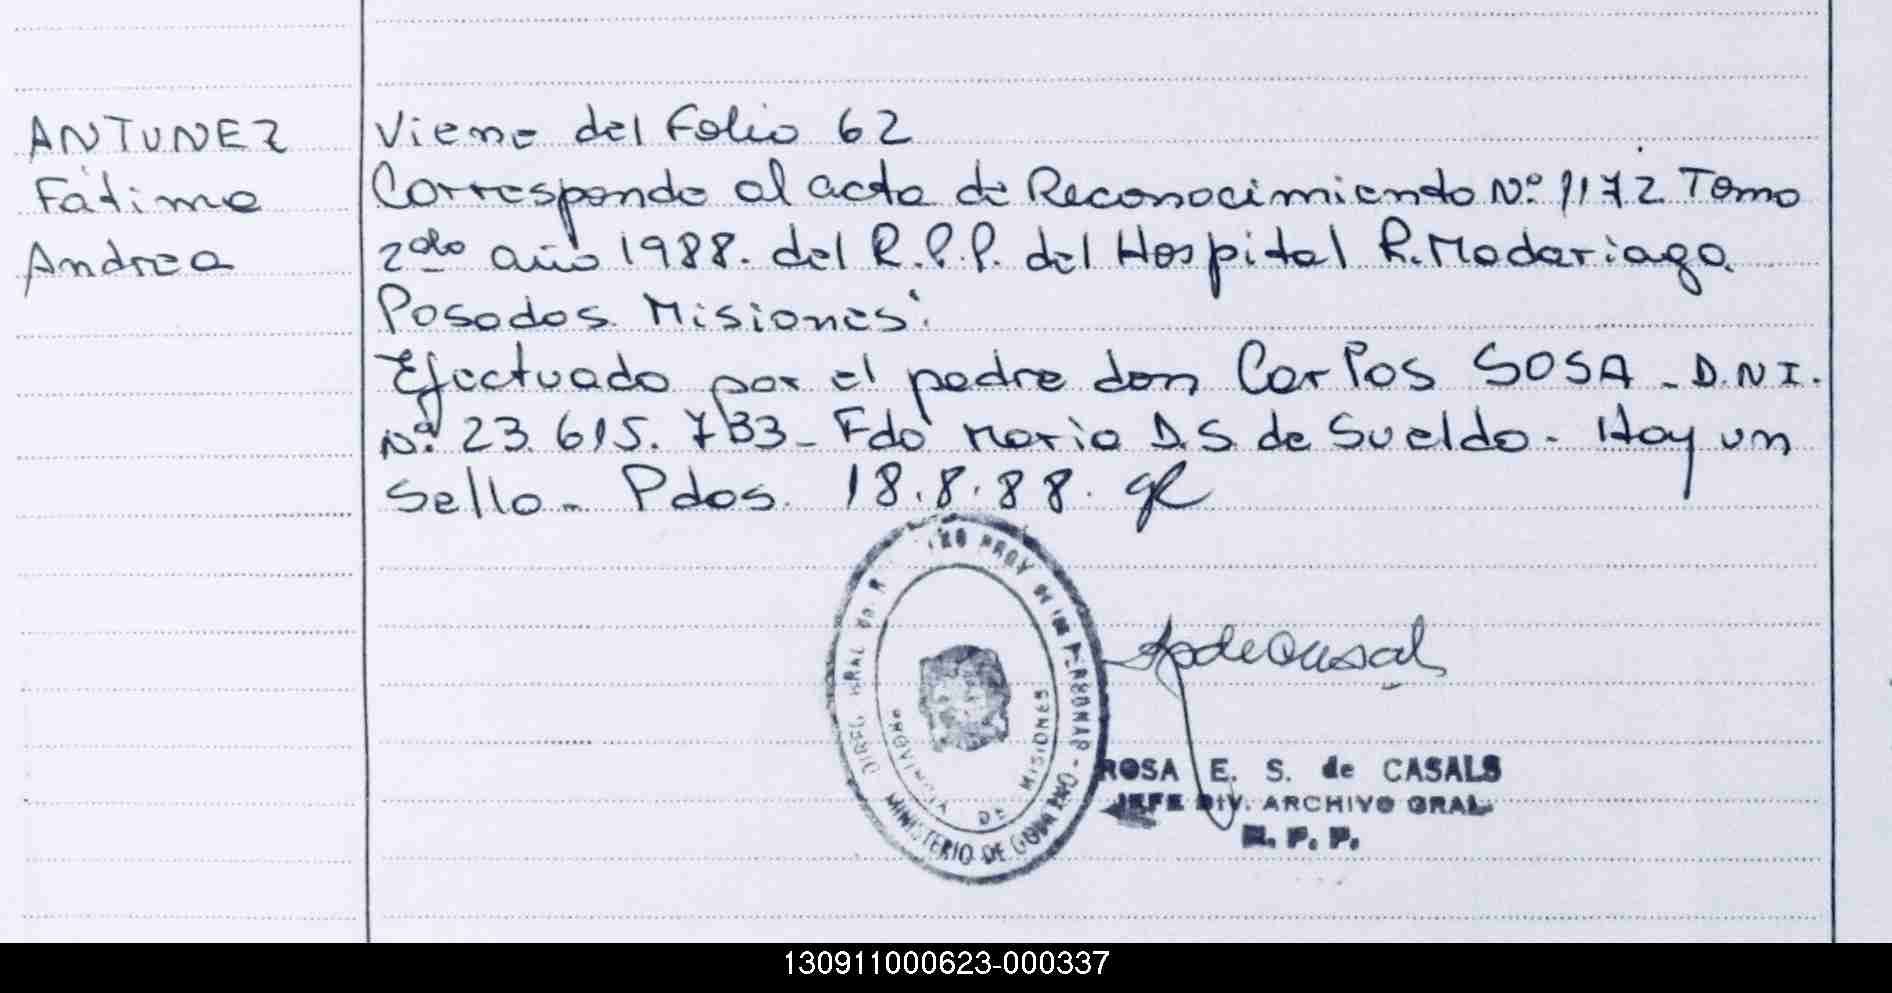 ANTUNEZ
Fátima
Andrea
Viene del Folio 62
Corresponde al acta de Reconocimiento Nº 1172 Tomo
2do año 1988. del R.P.P. del Hospital R. Madariaga
Posadas Misiones.
Efectuado por el padre don Carlos SOSA - D.N.I.
Nº 23.615.733 - Fdo Maria D.S. de Sueldo - Hay un
sello - Pdas. 18.8.88.
PROV DE LAS PERSONAS - MINISTERIO DE GOBIERNO
PROVINCIA DE MISIONES
ROSA E. S. de CASALS
JEFE DIV. ARCHIVO GRAL.
R. P. P.
130911000623-000337